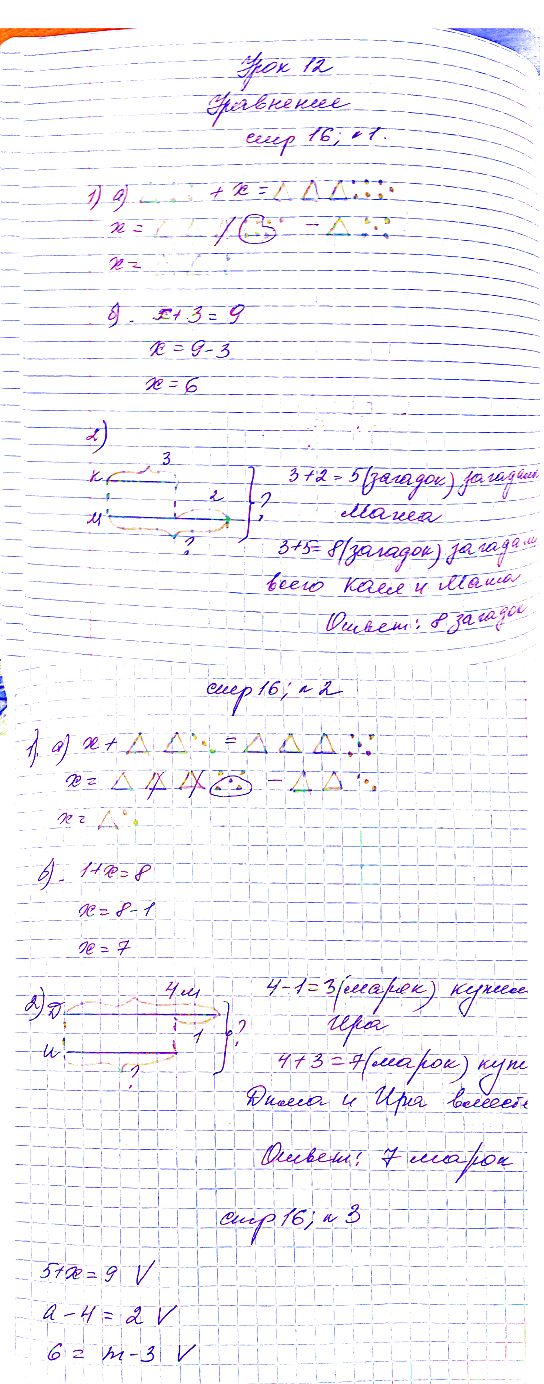 Урок 12
Уравнение
стр 16; №1.
1) а) + x =
x = -
x =
б). x + 3 = 9
x = 9 - 3
x = 6
2)
3
К
2
М
?
?
3+2=5(загадок) загадала
Маша
3+5=8(загадок) загадали
всего Катя и Маша
Ответ: 8 загадок
стр 16; №2
1). а) x + =
x = -
x =
б). 1+x=8
x=8-1
x=7
2)
4м
Д
1
И
?
?
4-1=3(марок) купила
Ира
4+3=7(марок) куп
Дима и Ира вместе
Ответ: 7 марок
стр 16; №3
5+x=9 V
а-4=2 V
6=m-3 V